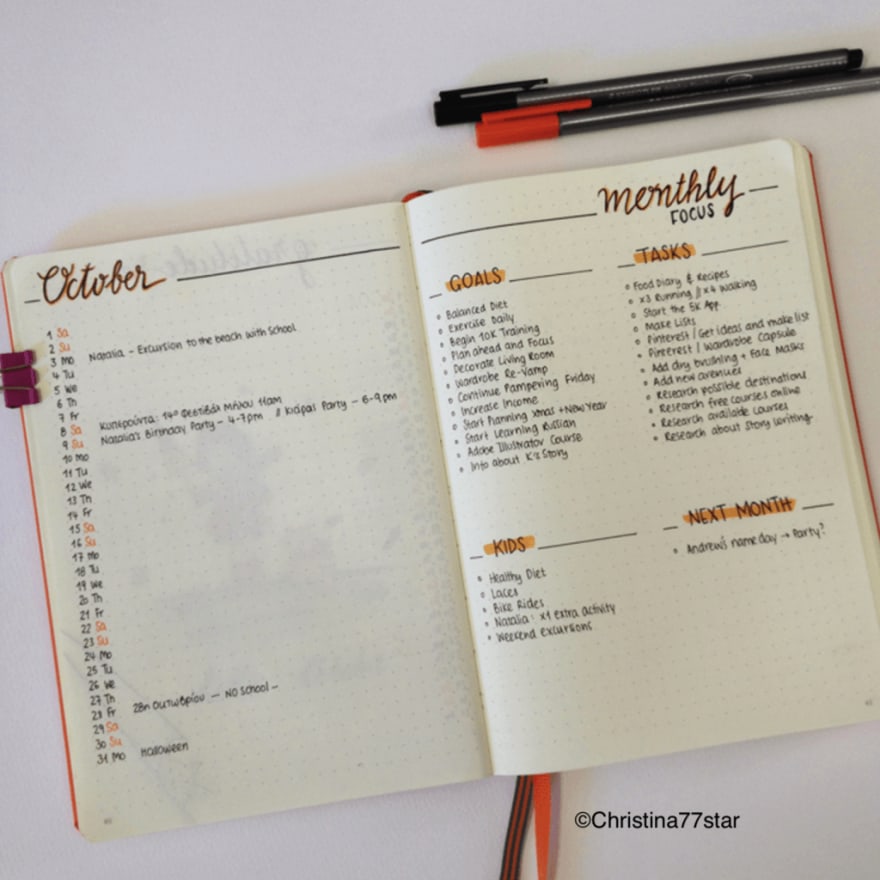 October
1 Sa
2 Su
3 Mo Natalia - Excursion to the beach with School
4 Tu
5 We
6 Th
7 Fr
8 Sa Κυπερούντα: 14ο Φεστιβάλ Μήλου 11am
9 Su Natalia's Birthday Party - 4-7pm // Party - 6-9pm
10 Mo
11 Tu
12 We
13 Th
14 Fr
15 Sa
16 Su
17 Mo
18 Tu
19 We
20 Th
21 Fr
22 Sa
23 Su
24 Mo
25 Tu
26 We
27 Th
28 Fr 28η Οκτωβρίου — NO School -
29 Sa
30 Su
31 Mo Halloween
monthly
FOCUS
GOALS
Balanced Diet
Exercise Daily
Begin 10K Training
Plan ahead and Focus
Decorate Living Room
Wardrobe Re-Vamp
Continue Pampering Friday
Increase Income
Start Planning Xmas + New Year
Start Learning Russian
Adobe Illustrator Course
Into about K's Story
TASKS
Food Diary & Recipes
x3 Running // x4 Walking
Start the 5K App
Make Lists
Pinterest / Get ideas and make list
Pinterest / Wardrobe Capsule
Add dry brushing + Face Masks
Add new avenues
Research possible destinations
Research free courses online
Research available courses
Research about story writing
KIDS
Healthy Diet
Laces
Bike Rides
Natalia: x1 extra activity
Weekend excursions
NEXT MONTH
Andrew's nameday → Party?
©Christina77star